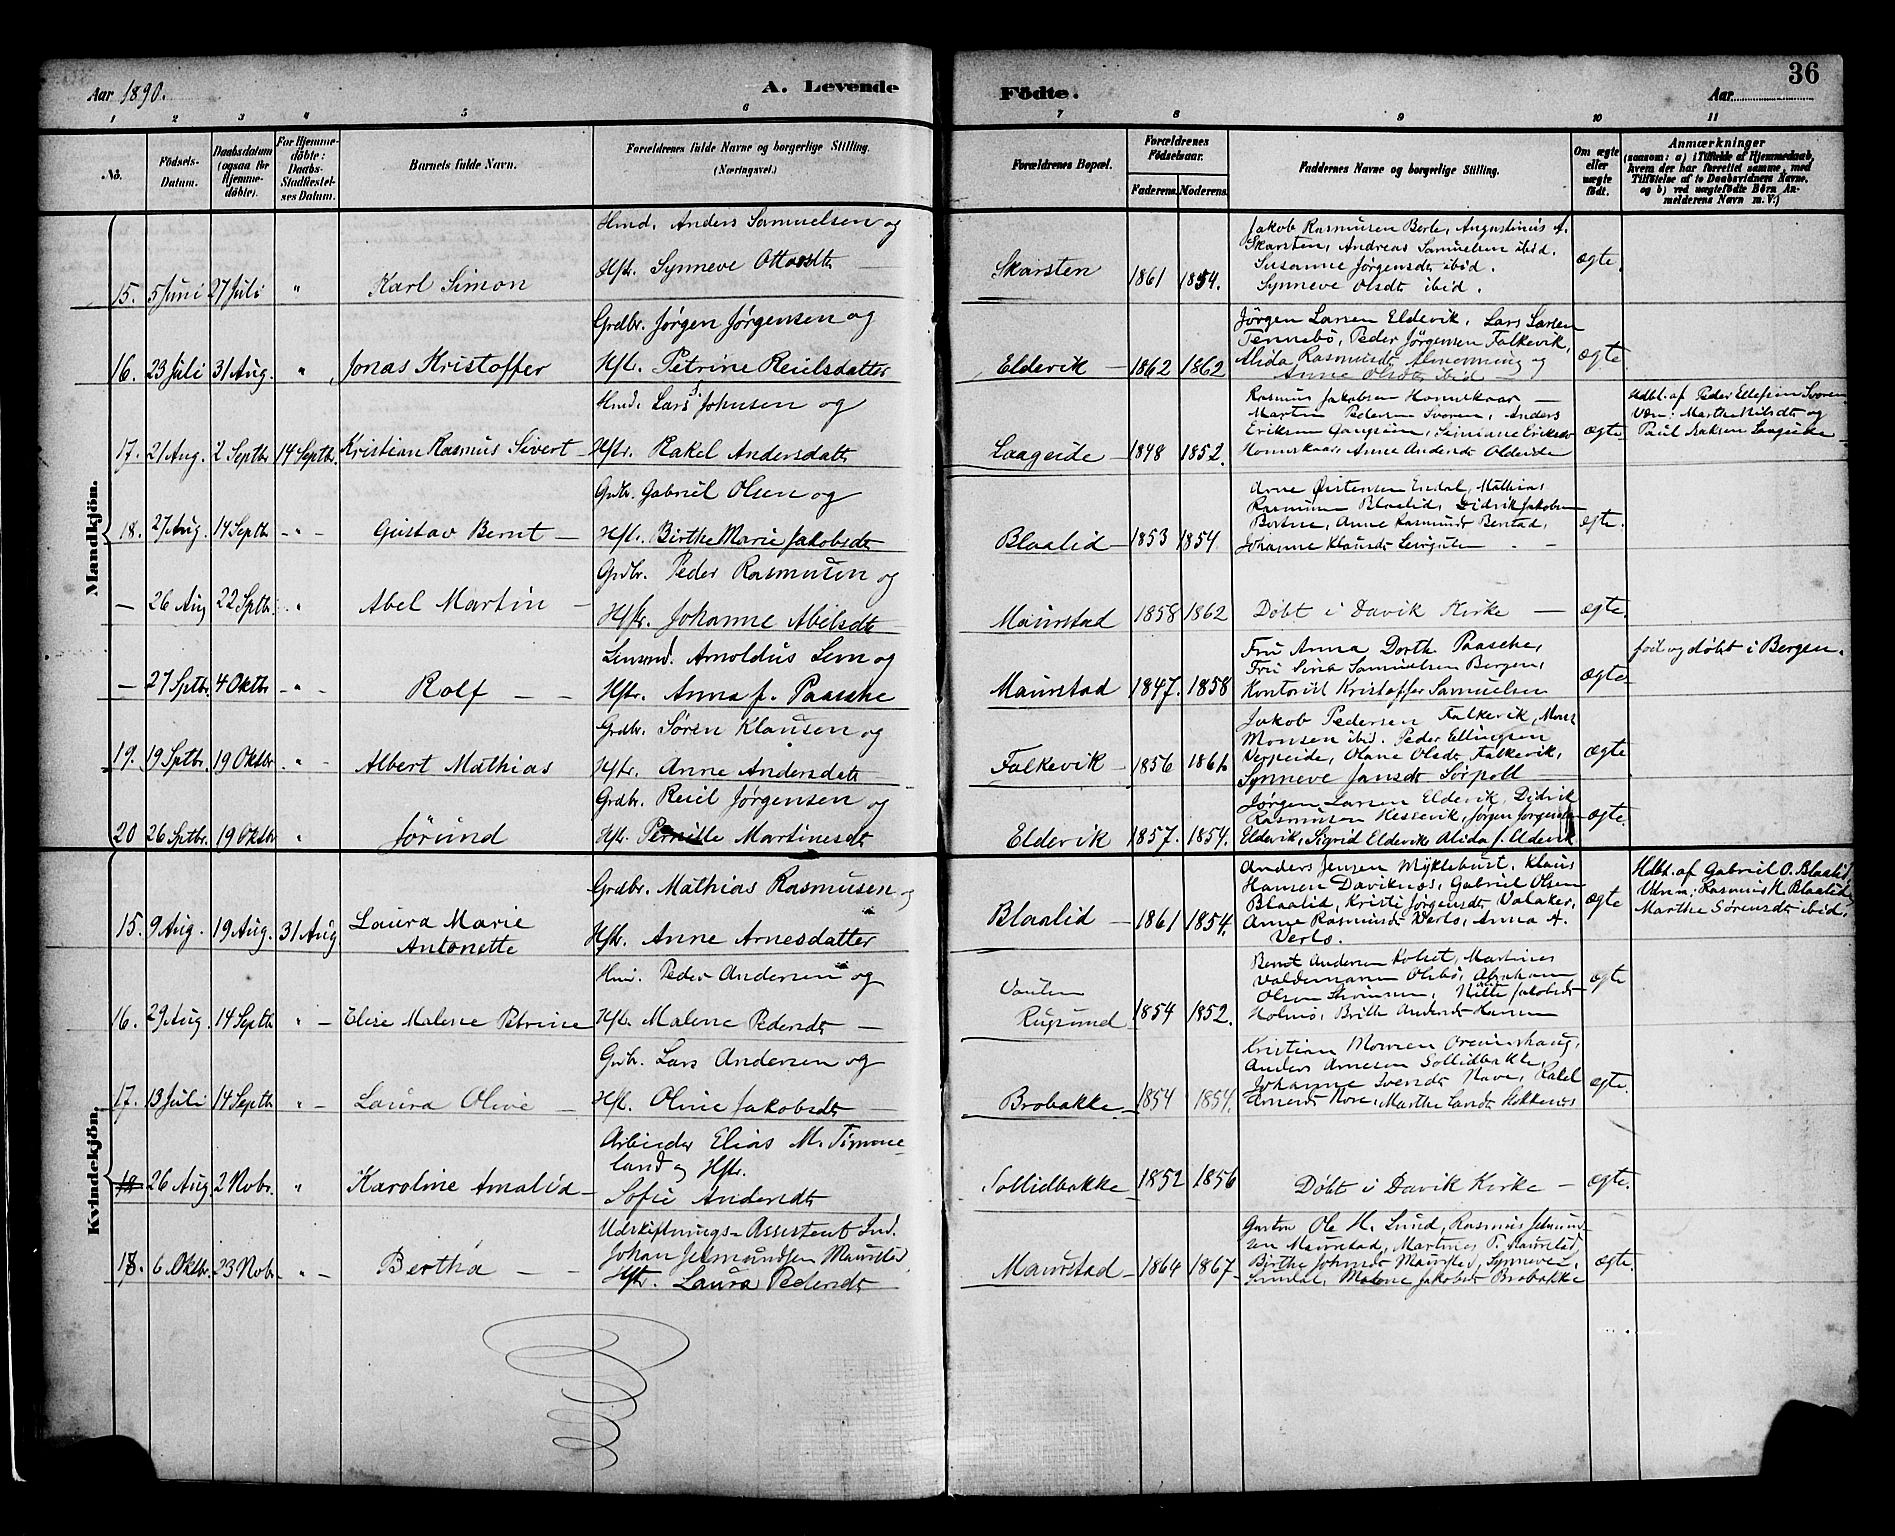 Aar 1890.
A. Levende
Fødte.
36
Aar
1 2 3 4 5 6 7 8 9 10 11
No.
Fødsels-Datum.
Daabsdatum (ogsaa for Hjemmedøbte).
For Hjemmedøbte: Daabs-Stadfæstelses Datum.
Barnets fulde Navn.
Forældrenes fulde Navne og borgerlige Stilling. (Næringsvei.)
Forældrenes Bopæl.
Forældrenes Fødselsaar.
Faderens. Moderens.
Faddernes Navne og borgerlige Stilling.
Om ægte eller uægte født.
Anmærkninger
(saasom: a) i Tilfælde af Hjemmedaab, hvem der har forrettet samme, med Tilføielse af to Daabsvidners Navne, og b) ved uægtefødte Børn Anmelderens Navn m. V.)
Mandkjøn.
15. 5 Juni 27 Juli " Karl Simon
Hmd. Anders Samuelsen og
Hstr. Synneve Ottosdtr —
Skarsten 1861 1854.
Jakob Rasmusen Berle, Augustinus A.
Skarsten, Andreas Samuelsen ibid.
Susanne Jørgensdtr ibid.
Synneve Olsdtr ibid.
ægte.
16. 23 Juli 31 Aug. " Jonas Kristoffer
Grdbr. Jørgen Jørgensen og
Hstr. Petrine Reielsdatter
Eldevik — 1862 1862
Jörgen Larsen Eldevik, Lars Larsen
Tennebö, Peder Jörgensen Falkevik,
Alida Rasmusdtr Almenning og
Anne Olsdtr ibid —
ægte
17. 21 Aug. 2 Septbr 14 Septbr. Kristian Rasmus Sivert —
Hmd. Lars Johnsen og
Hstr. Rakel Andersdatter
Laageide — 1848 1852.
Rasmus Jakobsen Honnskaar —
Martin Pedersen Svoren, Anders
Eriksen
Honnskaar, Anne Andersdtr Oldeide
ægte.
Hdbt. af Peder Ellefsen Svoren
Vdn: Marthe Nilsdtr og
Paul Laageide
18. 27 Aug. 14 Septbr - " - Gustav Bernt —
Grdbr. Gabriel Olsen og
Hst. Birthe Marie Jakobsdtr
Blaalid — 1853 1854.
Arne Mathias
Rasmusen Blaalid, Didrik Jakobsen
Anne Rasmusdtr
Johanne Klausdtr
ægte.
— 26 Aug 22 Sptbr. " Abel Martin —
Grdbr. Peder Rasmusen og
Hstr. Johanne Abelsdtr
Maurstad 1858 1862 Döbt i Davik Kirke — ægte.
— 27 Sptbr. 4 Oktbr - " - Rolf — —
Lensmd. Arnoldus Lem og
Hstr. Anna f. Paasche
Maurstad 1847. 1858
Fru Anna Dorth. Paasche,
Fru Sina Samuelsen Bergen,
Kontorist Kristoffer Samuelsen
ægte.
fød og døbt i Bergen.
19. 19 Sptbr. 19 Oktbr " — Albert Mathias
Grdbr. Søren Klausen og
Hstr. Anne Andersdatter
Falkevik — 1856 1861.
Jakob Pedersen Falkevik, Mons
Monsen ibid. Peder Ellingsen
Verpeide, Oline Olsdtr Falkevik,
Synneve Jansdtr Sörpoll —
ægte.
20 26 Sptbr. 19 Oktbr " Jörund
Grdbr. Reiel Jørgensen og
Hst. Pernille Martinusdtr
Eldevik 1857. 1854.
Jørgen Larsen Eldevik, Didrik
Rasmusen Hessevik, Jørgen Jørgensen
Eldevik, Sigrid Eldevik Alida f. Eldevik
ægte.
Kvindekjön.
15. 9 Aug. 19 Aug. 31 Aug
Laura Marie
Antonette
Grdbr. Mathias Rasmusen og
Hstr. Anne Arnesdatter
Blaalid — 1861 1854.
Anders Jensen Myklebust, Klaus
Hansen Daviknes, Gabriel Olsen
Blaalid, Kristi Jørgensdtr Valaker,
Anne Rasmusdtr Verlo, Anna A.
Verlo.
ægte
Hdbt. af Gabriel O. Blaalid,
Vdn.: Rasmus H. Blaalid
Marthe Sørensdtr ibid.
16. 29 Aug. 14 Septbr " — Elise Malene Petrine
Hmd. Peder Andersen og
Hst. Malene Pedersdtr —
Rugsund 1854 1852.
Bernt Andersen Martinus
Abraham
Olsen Jakobsdtr
Holmö, Brithe Andersdtr Hansen
ægte
17. 13 Juli 14 Septbr " — Laura Olive —
Grdbr. Lars Andersen og
Hst. Oline Jakobsdtr —
Brobakke — 1854 1854.
Kristian Monsen
Anders Arnesen Sollidbakke,
Johanne Rakel
Nore, Marthe
ægte.
18 26 Aug 2 Nobr. " Karoline Amalid —
Arbeider Elias M. Timme-
land og Hstr.
Sofie Andersdtr
Sollidbakke 1852 1856 Döbt i Davik Kirke — ægte.
18. 6 Oktbr. 23 Nobr — " — Bertha — —
Udskiftnings-Assistent Ind.
Johan Jetmundsen Maurstad
Hstr. Laura Pedersdtr
Maurstad — 1864 1867
Ole H. Lund, Rasmus Jetmund-
sen Maurstad, Martinus P. Maurstad,
Birthe Johnsdtr Maurstad, Synneve L.
Malene Jakobsdtr Brobakke
ægte.